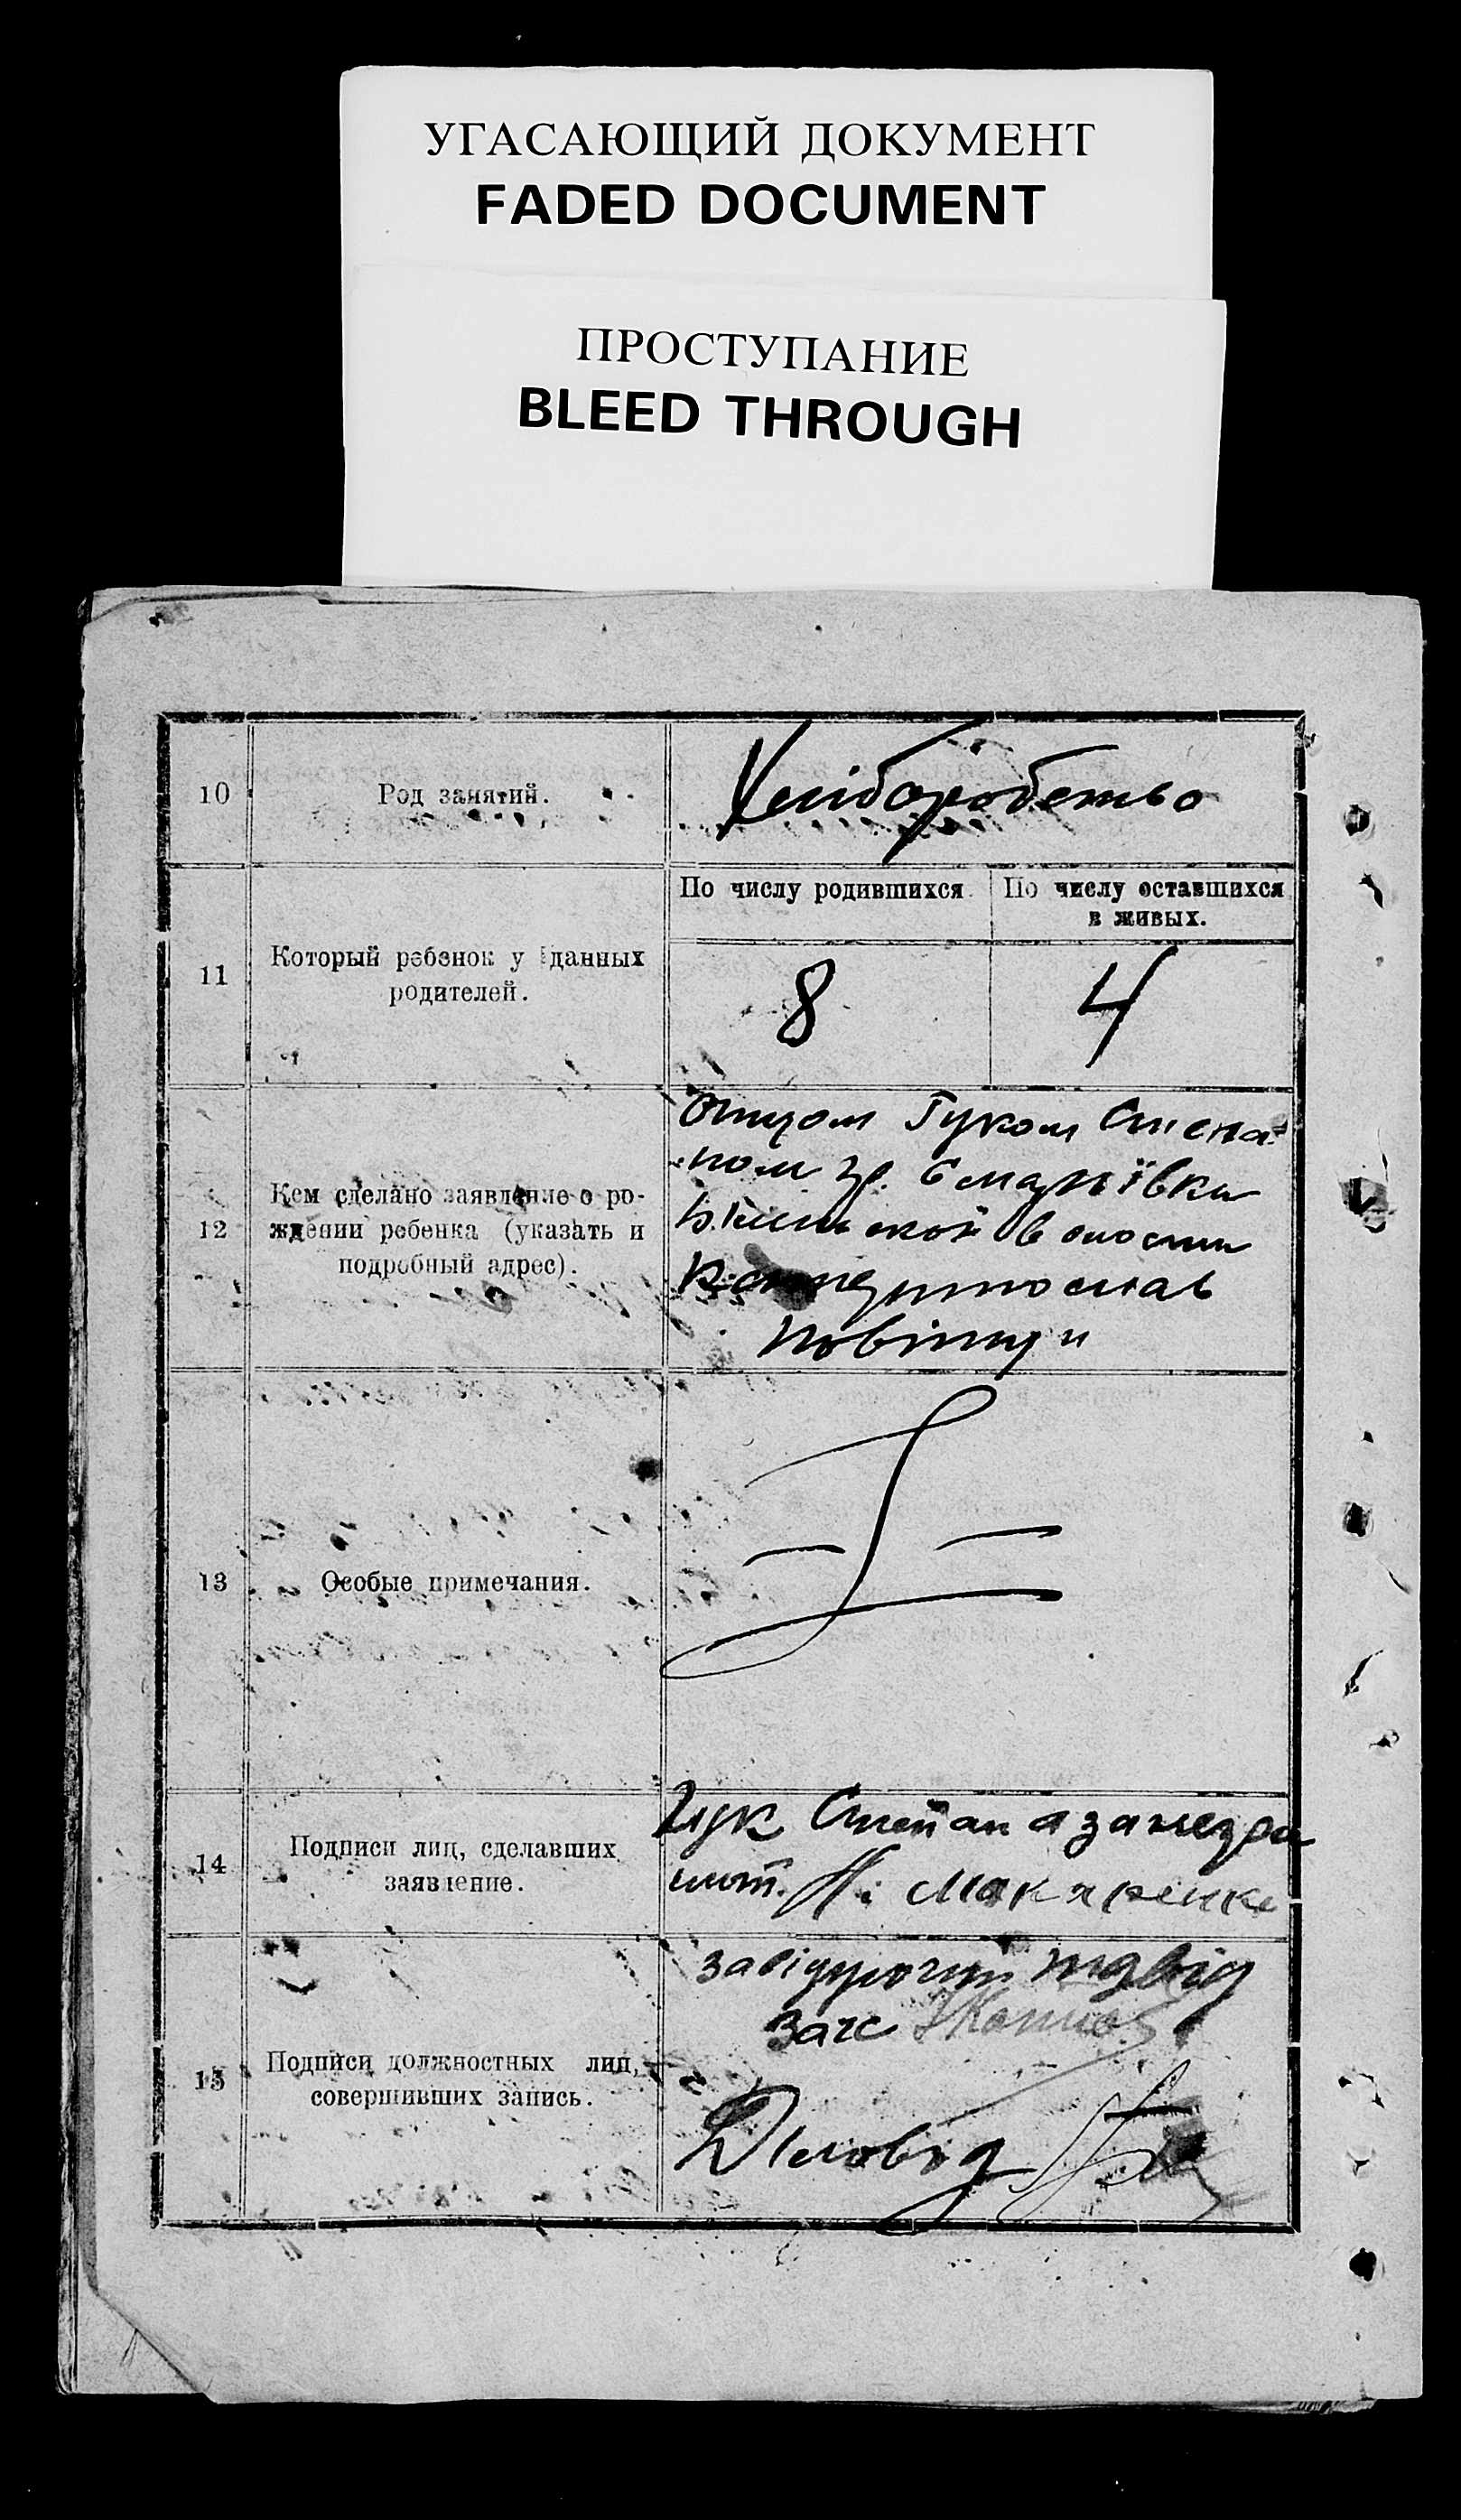 УГАСАЮЩИЙ ДОКУМЕНТ
FADED DOCUMENT
ПРОСТУПАНИЕ
BLEED THROUGH
10
Род занятий.
Хліборобство
11
Который ребенок у данных
родителей.
По числу родившихся.
По числу оставшихся
в живых.
8
4
12
Кем сделано заявление о ро-
ждении ребенка (указать и
подробный адрес).
Отцом Гуком Степа-
ном гр.
волости
повіту
13
Особые примечания.
14
Подписи лиц, сделавших
заявление.
Гук Степан а за негра
мот. Макаренко
15
Подписи должностных лиц,
совершивших запись.
Завідуючий підвід
Загс
Діловод